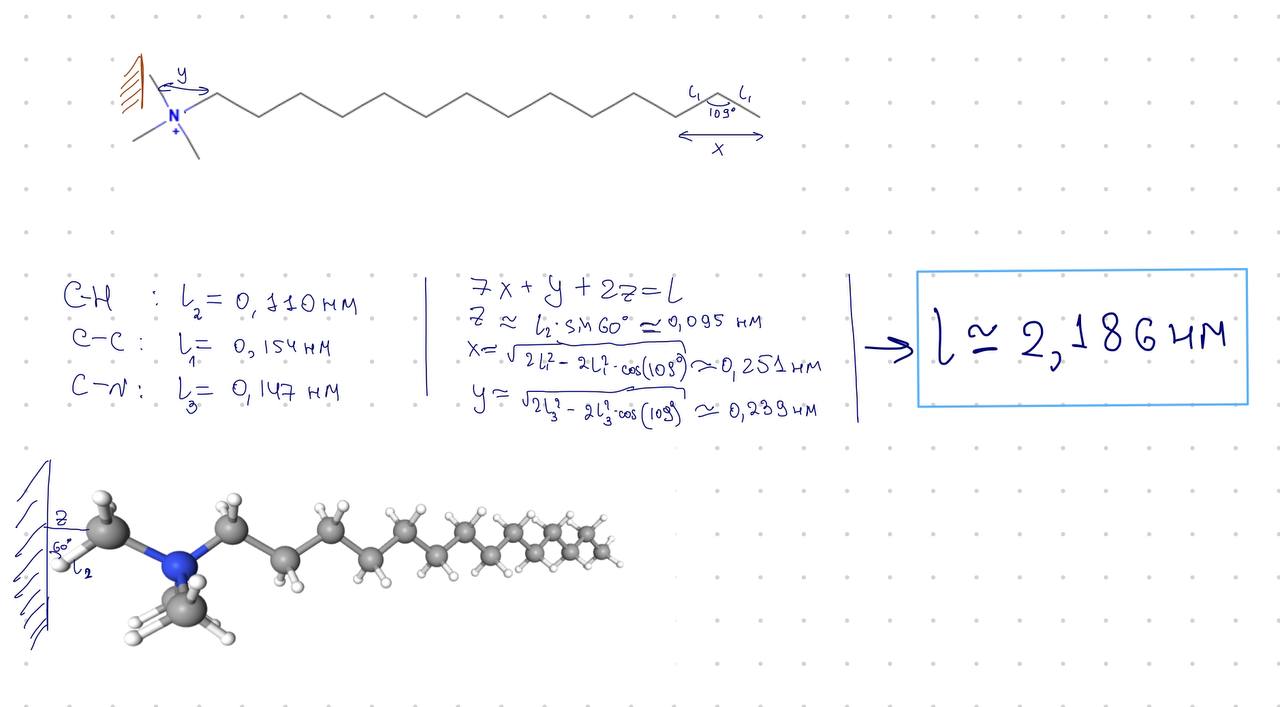 y
N
+
l₁ l₁
109°
x
C-H : l₂ = 0,110 нм
C-C : l₁ = 0,154 нм
C-N : l₃ = 0,147 нм
7x + y + 2z = l
z ≈ l₂·sin 60° ≃ 0,095 нм
x = √(2l₁² - 2l₁²·cos(109°)) ≃ 0,251 нм
y = √(2l₃² - 2l₃²·cos(109°)) ≃ 0,239 нм
→ l ≃ 2,186 нм
z
60°
l₂